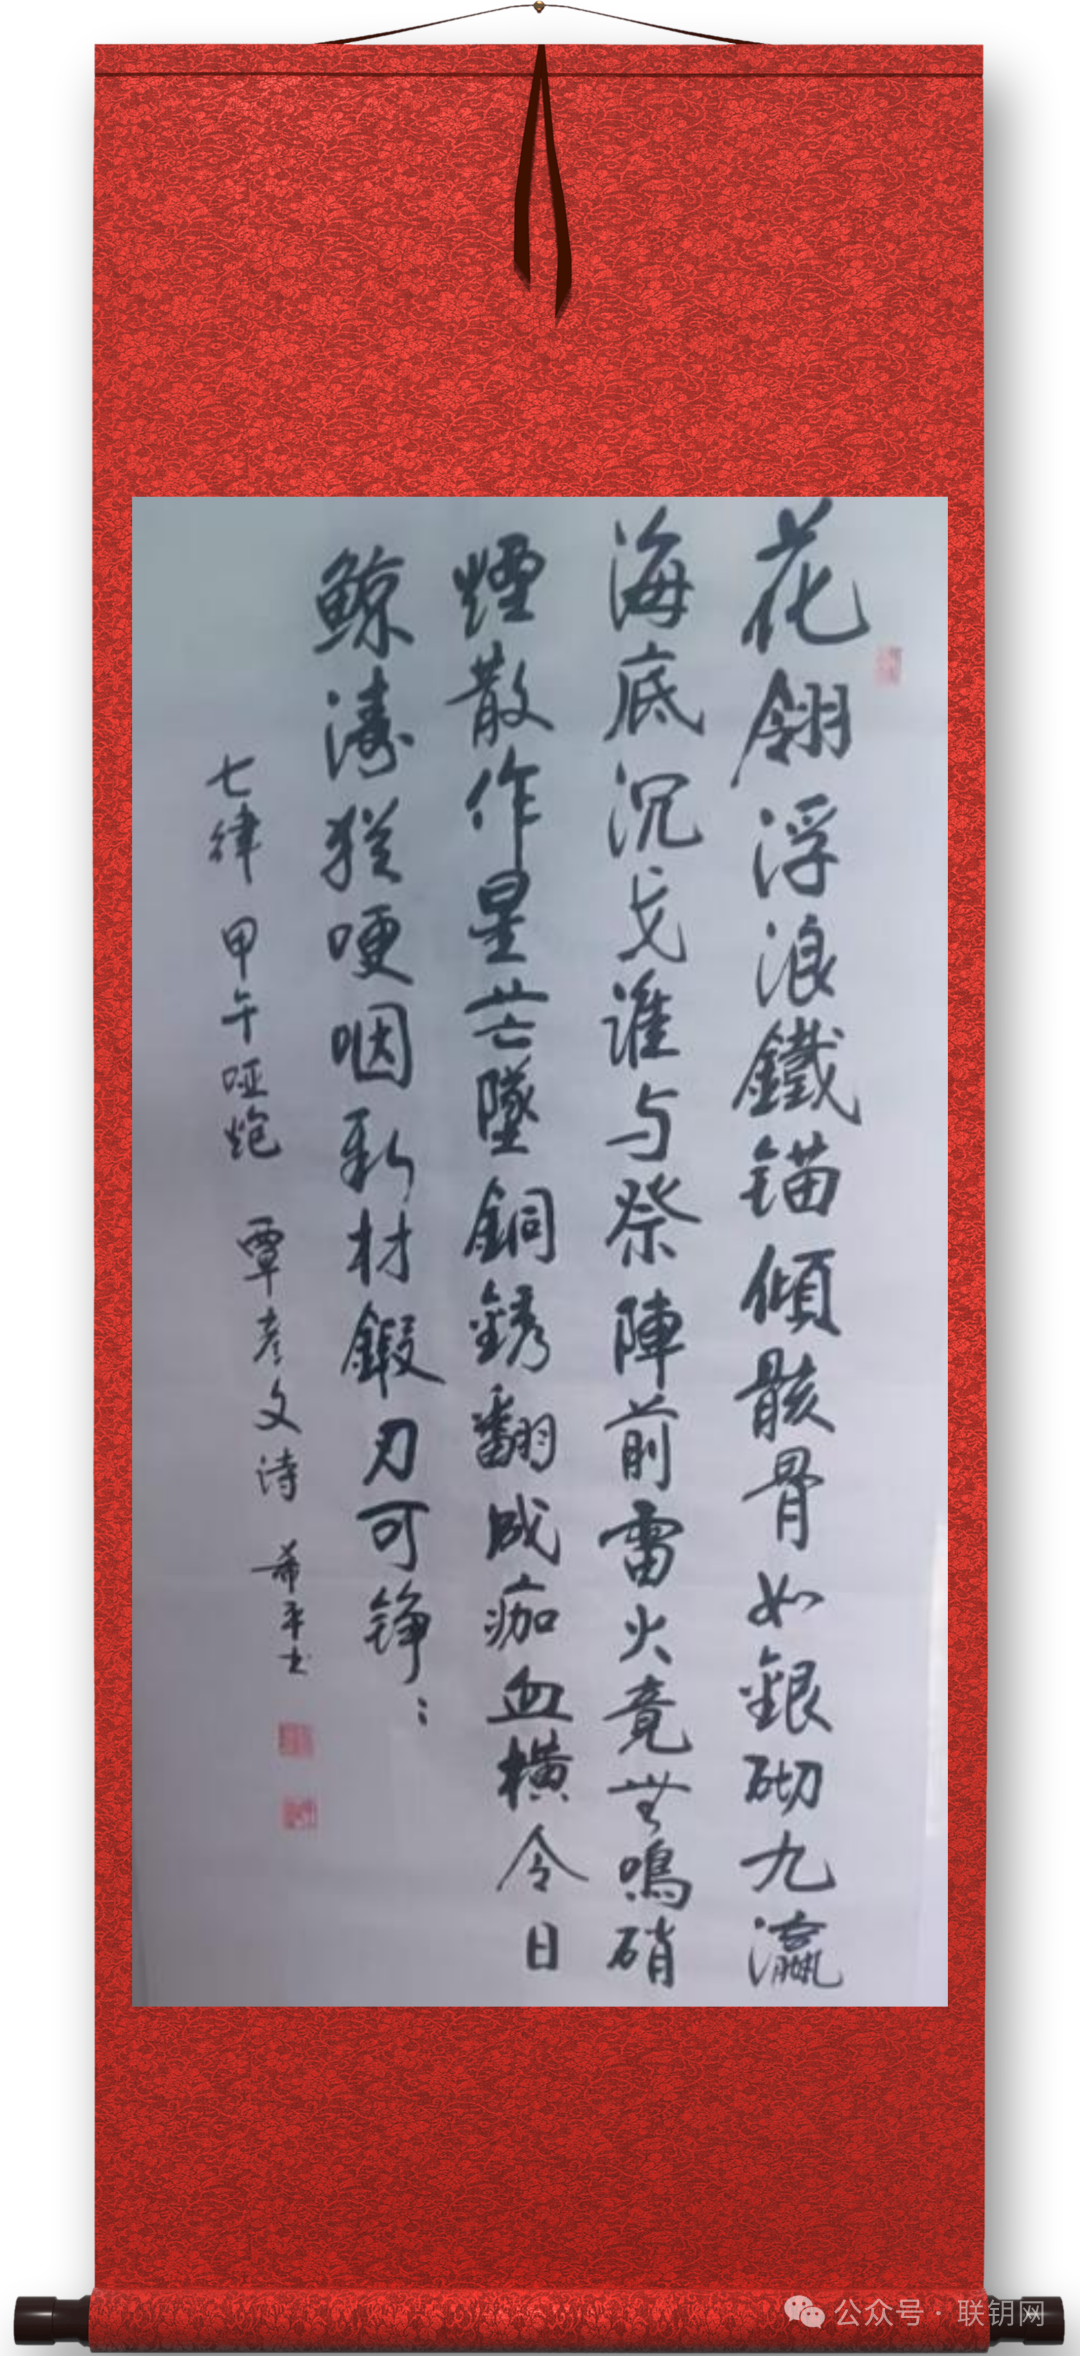 花翎浮浪鐵锚傾骸骨如銀砌九瀛
海底沉戈谁与祭陣前雷火竟无鳴硝
煙散作星芒墜銅銹翻成痂血橫今日
鲸濤猶哽咽新材鍛刃可铮:
七律 甲午哑炮 覃彦文诗 希平书
公众号·联钥网